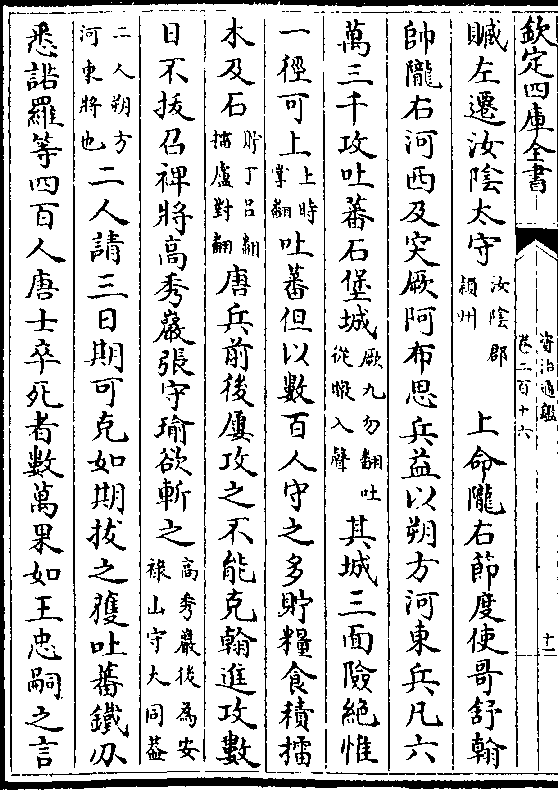 欽定四庫全書
資治通鑑
卷二百十六
十一
贓左遷汝陰太守汝陰郡潁州 上命隴右節度使哥舒翰
帥隴右河西及突厥阿布思兵益以朔方河東兵凡六
萬三千攻吐蕃石堡城厥九勿翻吐從暾入聲其城三面險絶惟
一徑可上上時掌翻吐蕃但以數百人守之多貯糧食積擂
木及石貯丁呂翻擂盧對翻唐兵前後屢攻之不能克翰進攻數
日不拔召禆將高秀巖張守瑜欲斬之高秀巖後為安祿山守大同葢
二人朔方河東將也二人請三日期可克如期拔之獲吐蕃鐵刃
悉諾羅等四百人唐士卒死者數萬果如王忠嗣之言